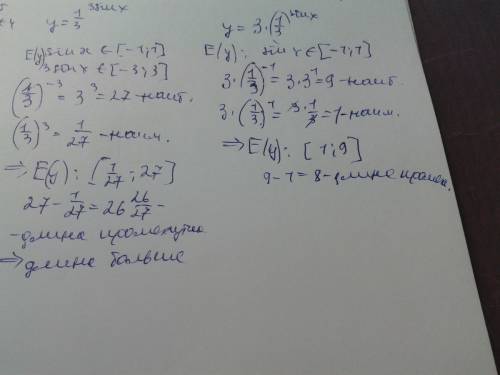 y = 1/3^3sinx
E(y) sin x ∈ [-1;1]
3 sin x ∈ [-3;3]
(1/3)^-3 = 3^3 = 27 - наиб.
(1/3)^3 = 1/27 - наим.
⇒ E(y): [1/27; 27]
27 - 1/27 = 26 26/27 -
- длина промежутка
⇒ длина больше
y = 3·(1/3)^sinx
E(y): sin x ∈ [-1;1]
3·(1/3)^-1 = 3·3^1 = 9 - наиб.
3·(1/3)^1 = 3·1/3 = 1 - наим.
⇒ E(y): [1;9]
9 - 1 = 8 - длина промеж.